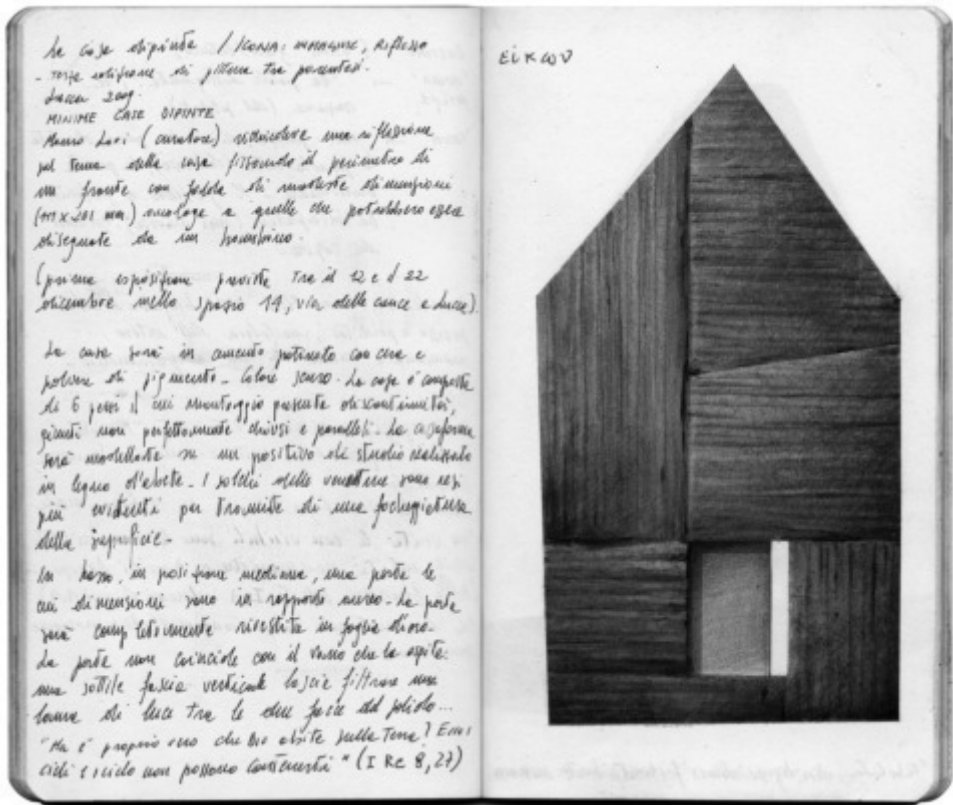 Le case dipinte / ICONA: immagine, riflesso
- terza edizione di pittura tra parentesi.
Lucca 2009.
MINIME CASE DIPINTE
Mauro Lovi (curatore) richiede una riflessione
sul tema della casa fissando il perimetro di
un fronte con falda di modeste dimensioni
mm.) analoghe a quelle che potrebbero essere
disegnate da un bambino.
(prima esposizione prevista tra il 12 e il 22
dicembre nello spazio 14, via delle a Lucca).
La casa sarà in cemento patinato con cera e
polvere di pigmento - Colore scuro - La casa è composta
di 6 pezzi il cui montaggio presenta discontinuità,
giunti non perfettamente chiusi e paralleli - La cassaforma
sarà modellata su un positivo di studio realizzato
in legno d'abete - I solchi delle venature sono resi
più evidenti per tramite di una della superficie -
In basso, in posizione mediana, una porta le
cui dimensioni sono in rapporto aureo - La porta
sarà completamente rivestita in foglia d'oro -
La porta non coincide con il vano che la ospita:
una sottile fascia verticale lascia filtrare una
lama di luce tra le due facce del solido...
"Ma è proprio vero che Dio abita sulla Terra? Ecco i
cieli e i cieli non possono contenerti" (I Re 8, 27)
εἰκων